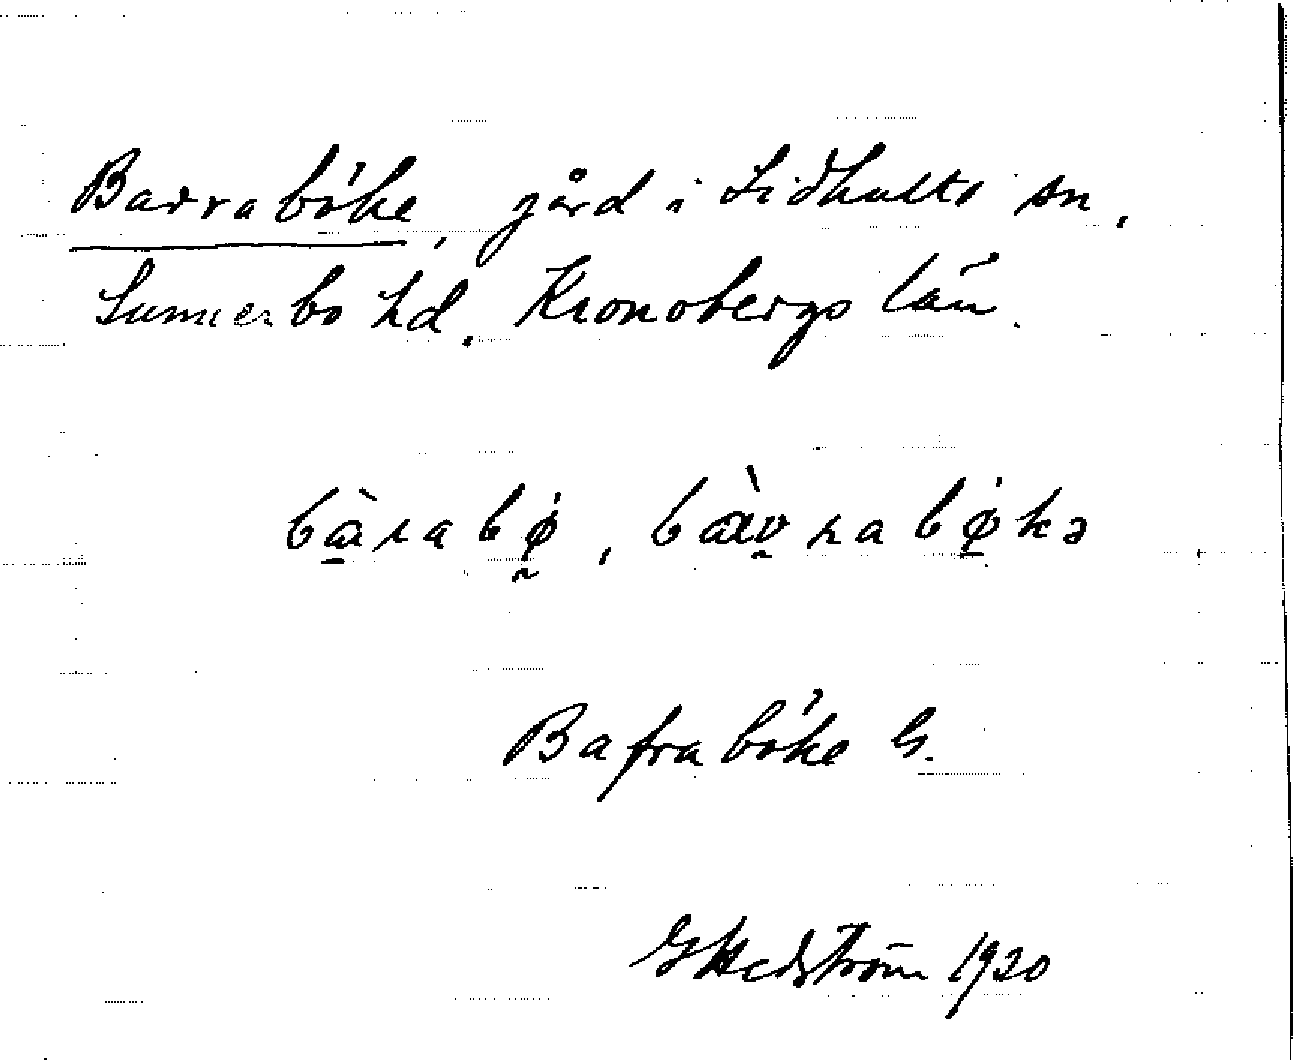 Barraböke, gård i Lidhults sn,
Sunnerbo hd. Kronobergs län.
bàrabø̀, bàu̯rabø̀kə
Bafraböke G.
GHedström 1920